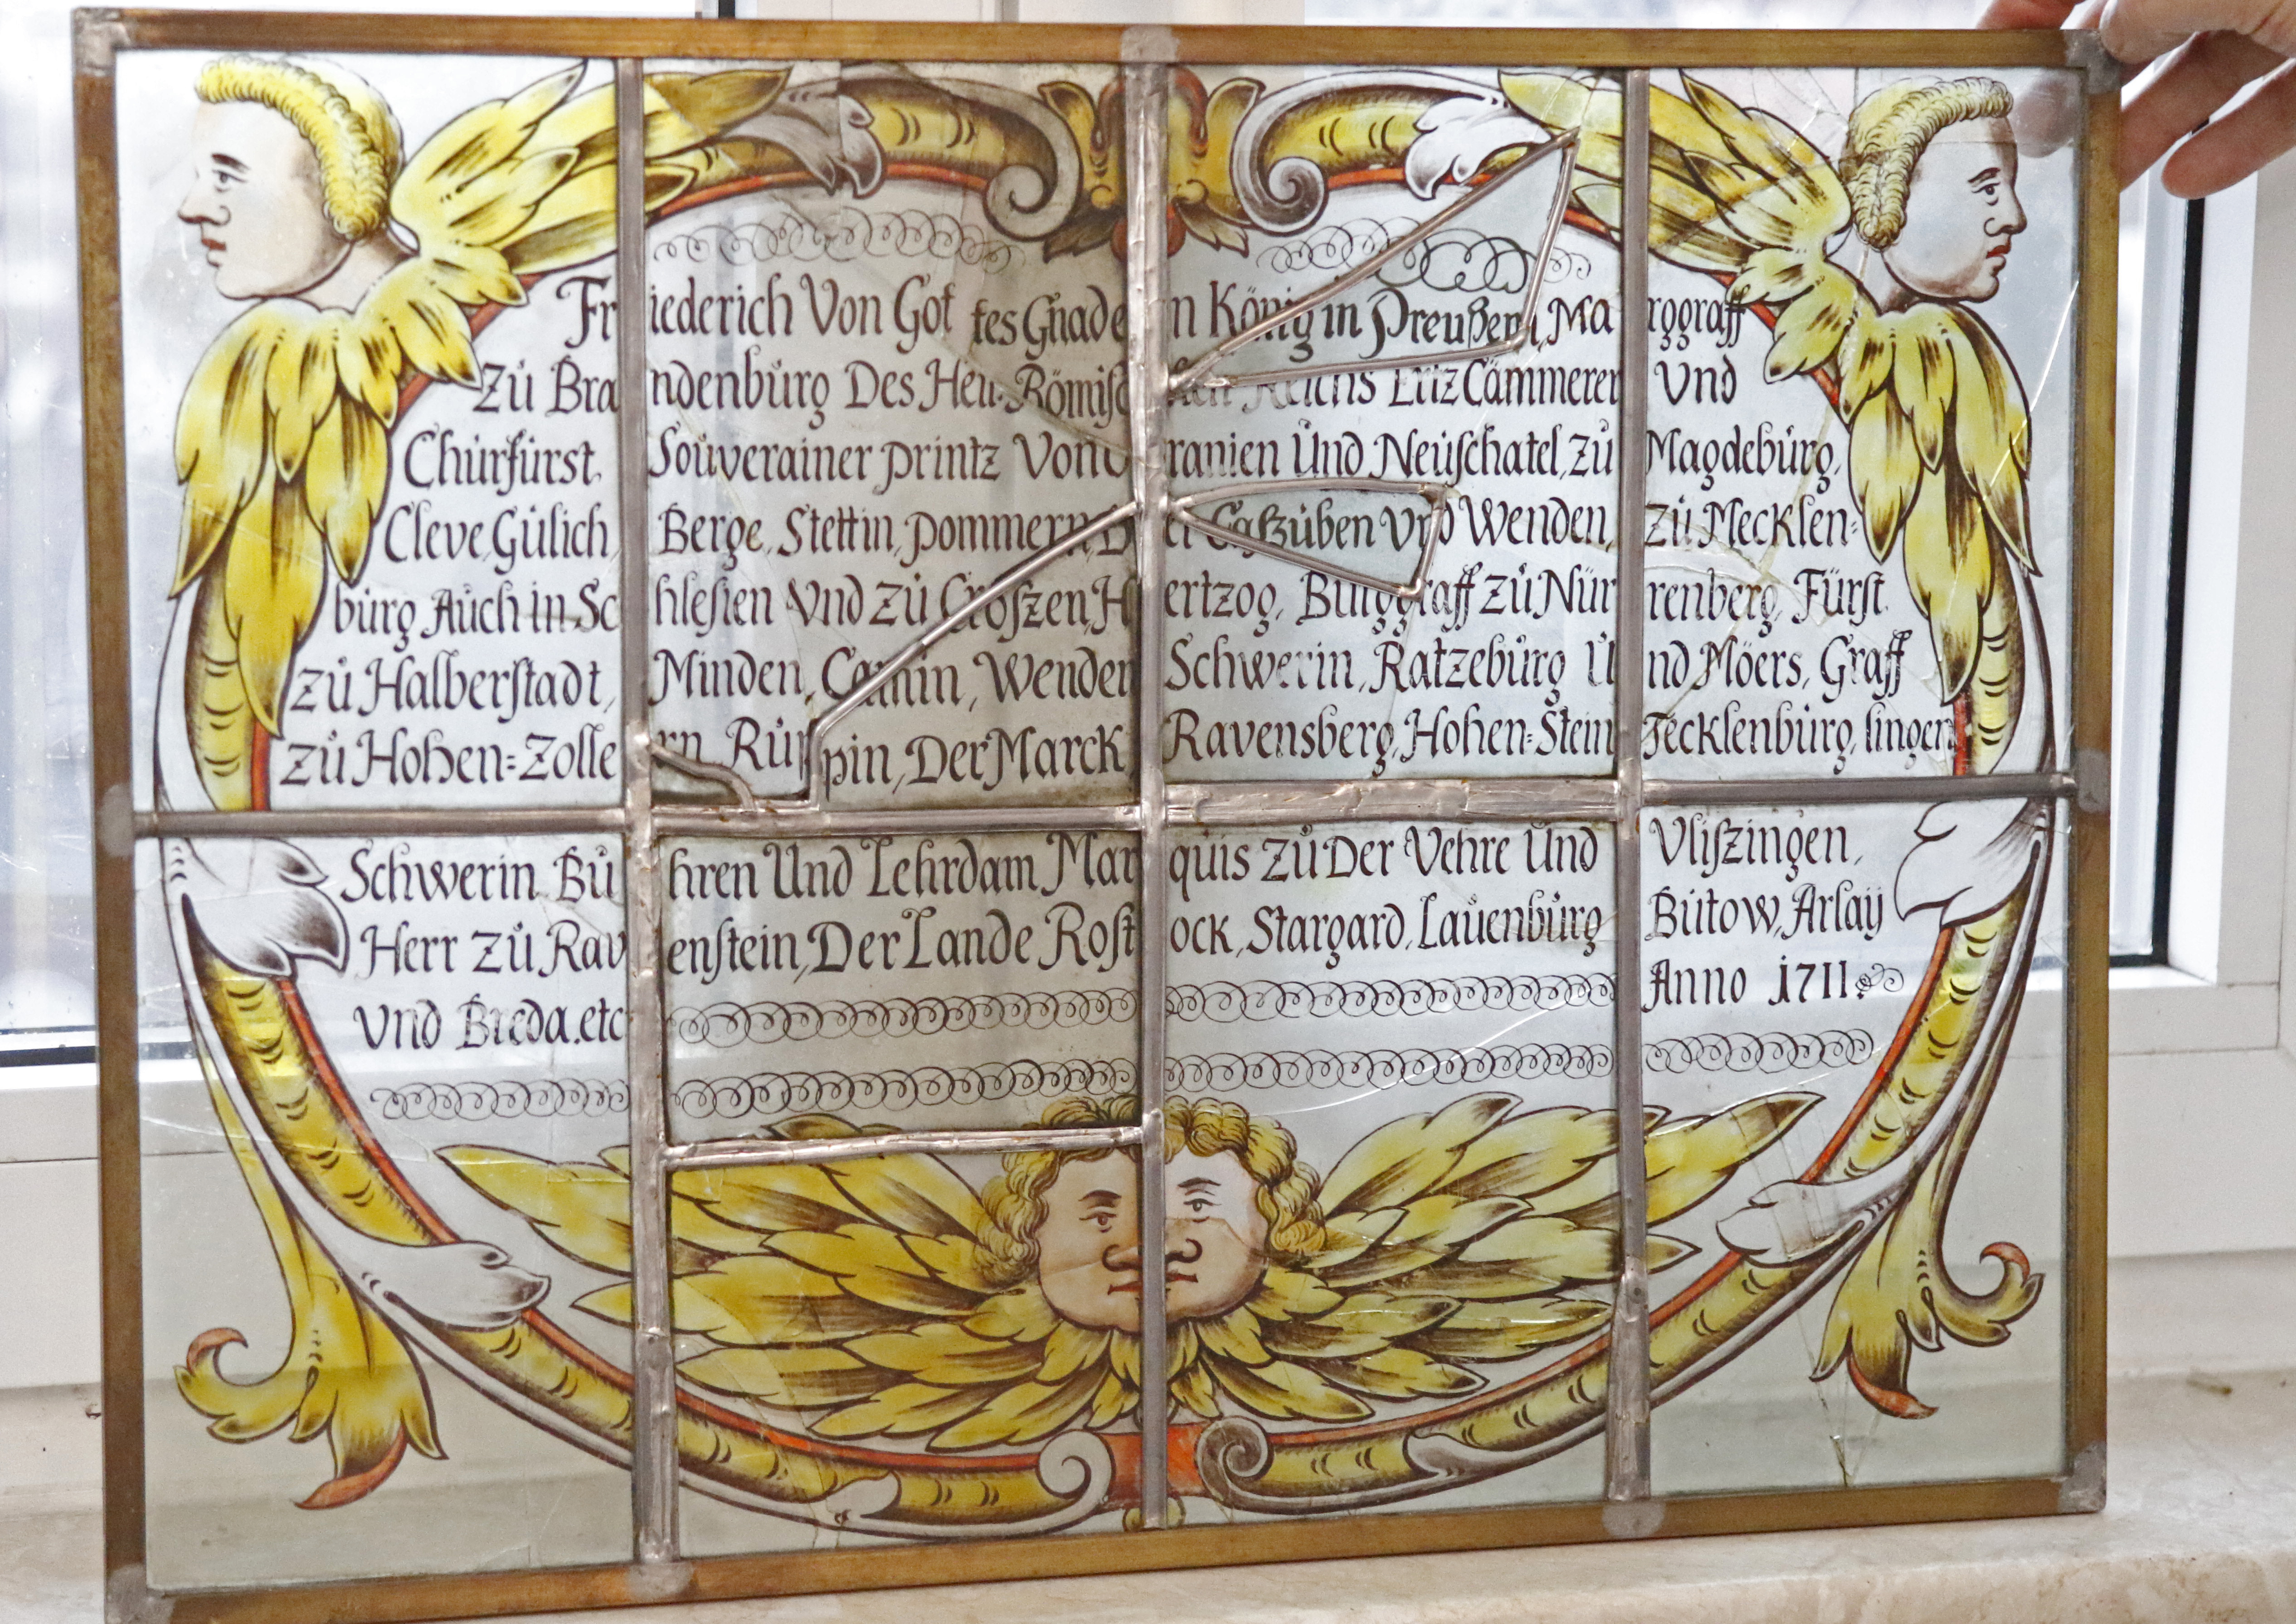 Friederich Von Gottes Gnaden König in Preußen, Marggraff
Zů Brandenbůrg Des Heil. Römischen Reichs Ertz Cämmerer Vnd
Chůrfürst. Soůverainer printz Von Oranien Und Neůschatel, zů Magdebůrg,
Cleve, Gülich, Berge, Stettin, pommern, Der Caßzůben Vnd Wenden, zů Mecklen=
bůrg Aůch in Schlesien Vnd zů Croszen, Hertzog, Bůrggraff zů Nürrenberg, Fürst
zů Halberstadt, Minden, Camin, Wenden Schwerin, Ratzebůrg Und Möers, Graff
zů Hohen=Zollern Rüppin, Der Marck Ravensberg, Hohen=Stein Tecklenbůrg, lingen
Schwerin Bůhren Und Lehrdam Marqůis zů Der Vehre Und Vliszingen,
Herr zů Ravenstein, Der Lande Rostock, Stargard, Laůenbůrg Bůtow, Arlaÿ
Vnd Breda. etc Anno 1711